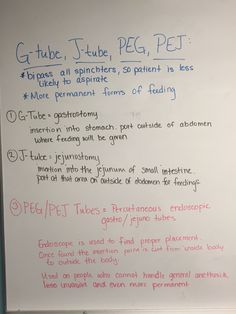 G-tube, J-tube, PEG, PEJ:
* bipass all spinchters, so patient is less
likely to aspirate
* More permanent forms of feeding
① G-Tube = gastrostomy
insertion into stomach. port outside of abdomen
where feeding will be given
② J-tube = jejunostomy
insertion into the jejunum of small intestine.
port at that area on outside of abdomen for feedings
③ PEG/PEJ Tubes = Percutaneous endoscopic
gastro/jejuno tubes
Endoscope is used to find proper placement.
Once found the insertion point is cut from inside body
to outside the body.
Used on people who cannot handle general anesthesia,
less invasive and even more permanent